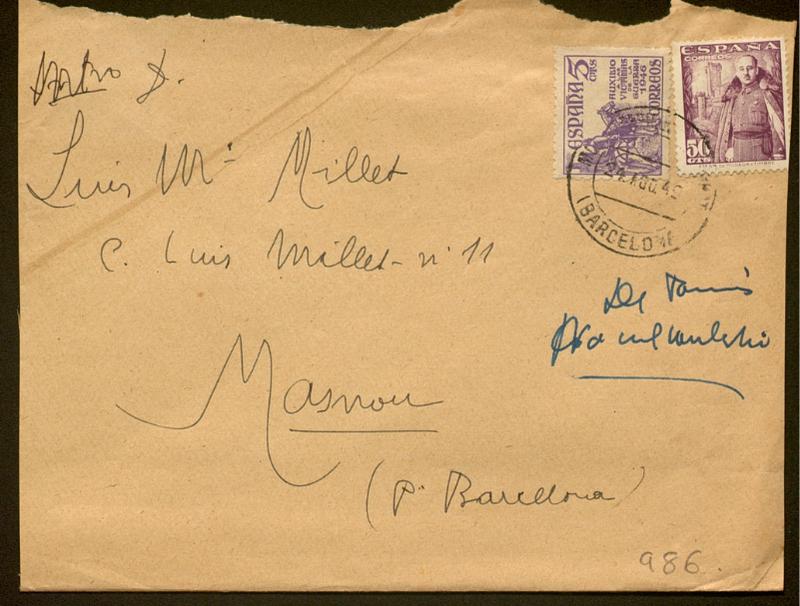 Luis Mª Millet
C. Luis Millet - nº 11
Masnou
(Pª Barcelona)
ESPAÑA 5 CTS
AUXILIO A LAS VICTIMAS DE LA GUERRA 1946
CORREOS
ESPAÑA
CORREOS
50 CTS
24 AGO. 49
(BARCELONA)
De Tomás
986.